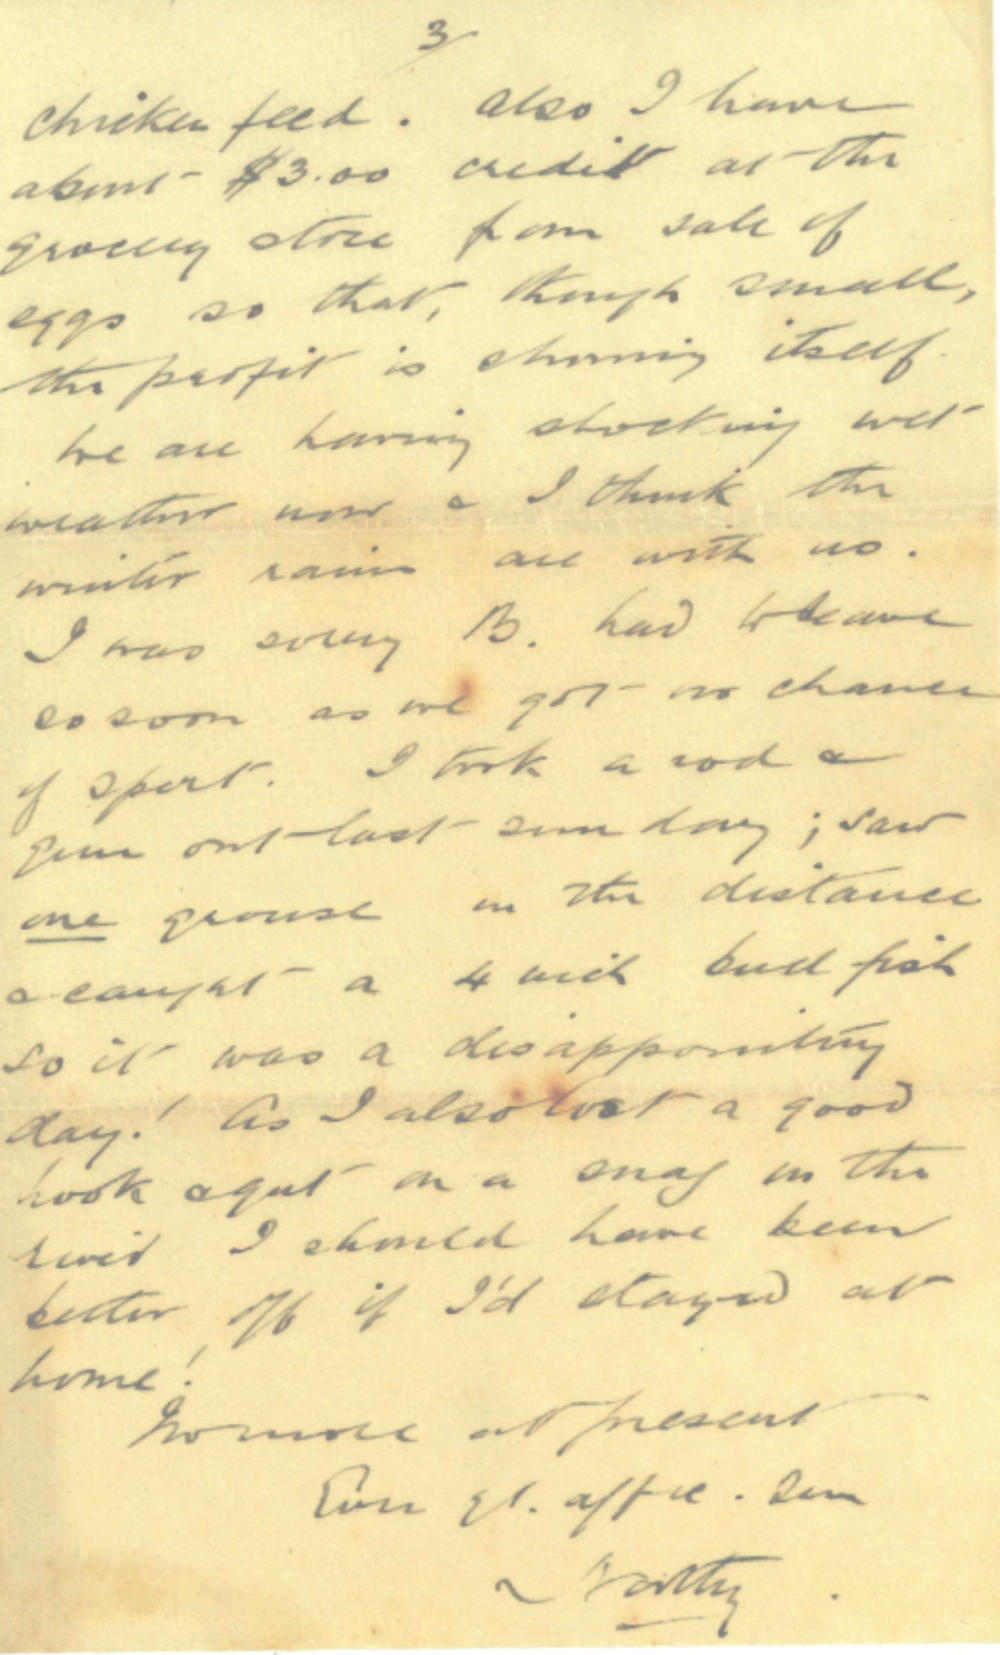 3/
chicken feed. Also I have
about $3.00 credit at the
grocery store from sale of
eggs so that, though small,
the profit is showing itself.
We are having shocking wet
weather now & I think the
winter rains are with us.
I was sorry B. had to leave
so soon as we got no chance
of sport. I took a rod &
gun out last sunday; saw
one grouse in the distance
& caught a 4 inch bull fish
so it was a disappointing
day! As I also lost a good
hook & gut on a snag in the
river I should have been
better off if I'd stayed at
home!
No more at present
Ever yr. affec. Son
~ Worthy.